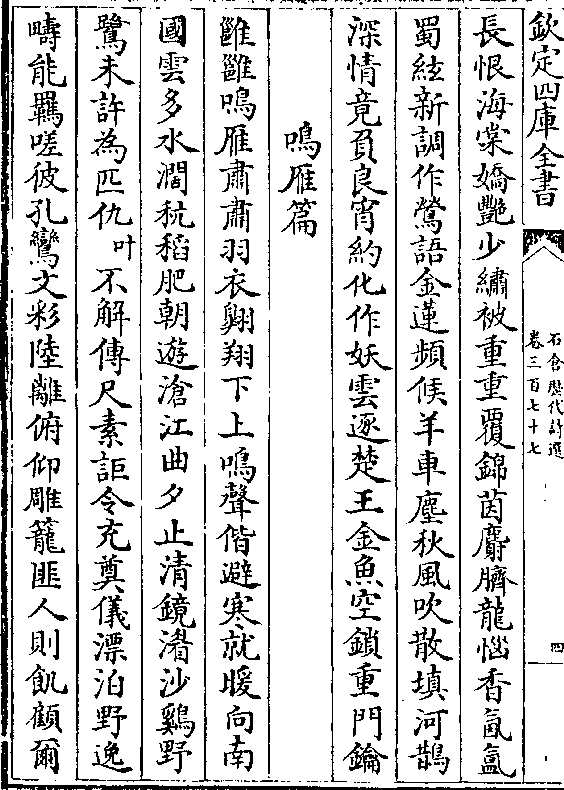 欽定四庫全書
石倉歷代詩選
卷三百七十七
四
長恨海棠嬌艷少繡被重重覆錦茵麝臍龍惱香氤氳
蜀絃新調作鶯語金蓮頻候羊車塵秋風吹散填河鵲
深情竟負良宵約化作妖雲逐楚王金魚空鎖重門鑰
鳴雁篇
雝雝鳴雁肅肅羽衣翺翔下上鳴聲偕避寒就暖向南
國雲多水濶秔稻肥朝遊滄江曲夕止清鏡渚沙鷄野
鷺未許為匹仇叶不解傳尺素詎令充奠儀漂泊野逸
疇能羈嗟彼孔鸞文彩陸離俯仰雕籠匪人則飢顧爾